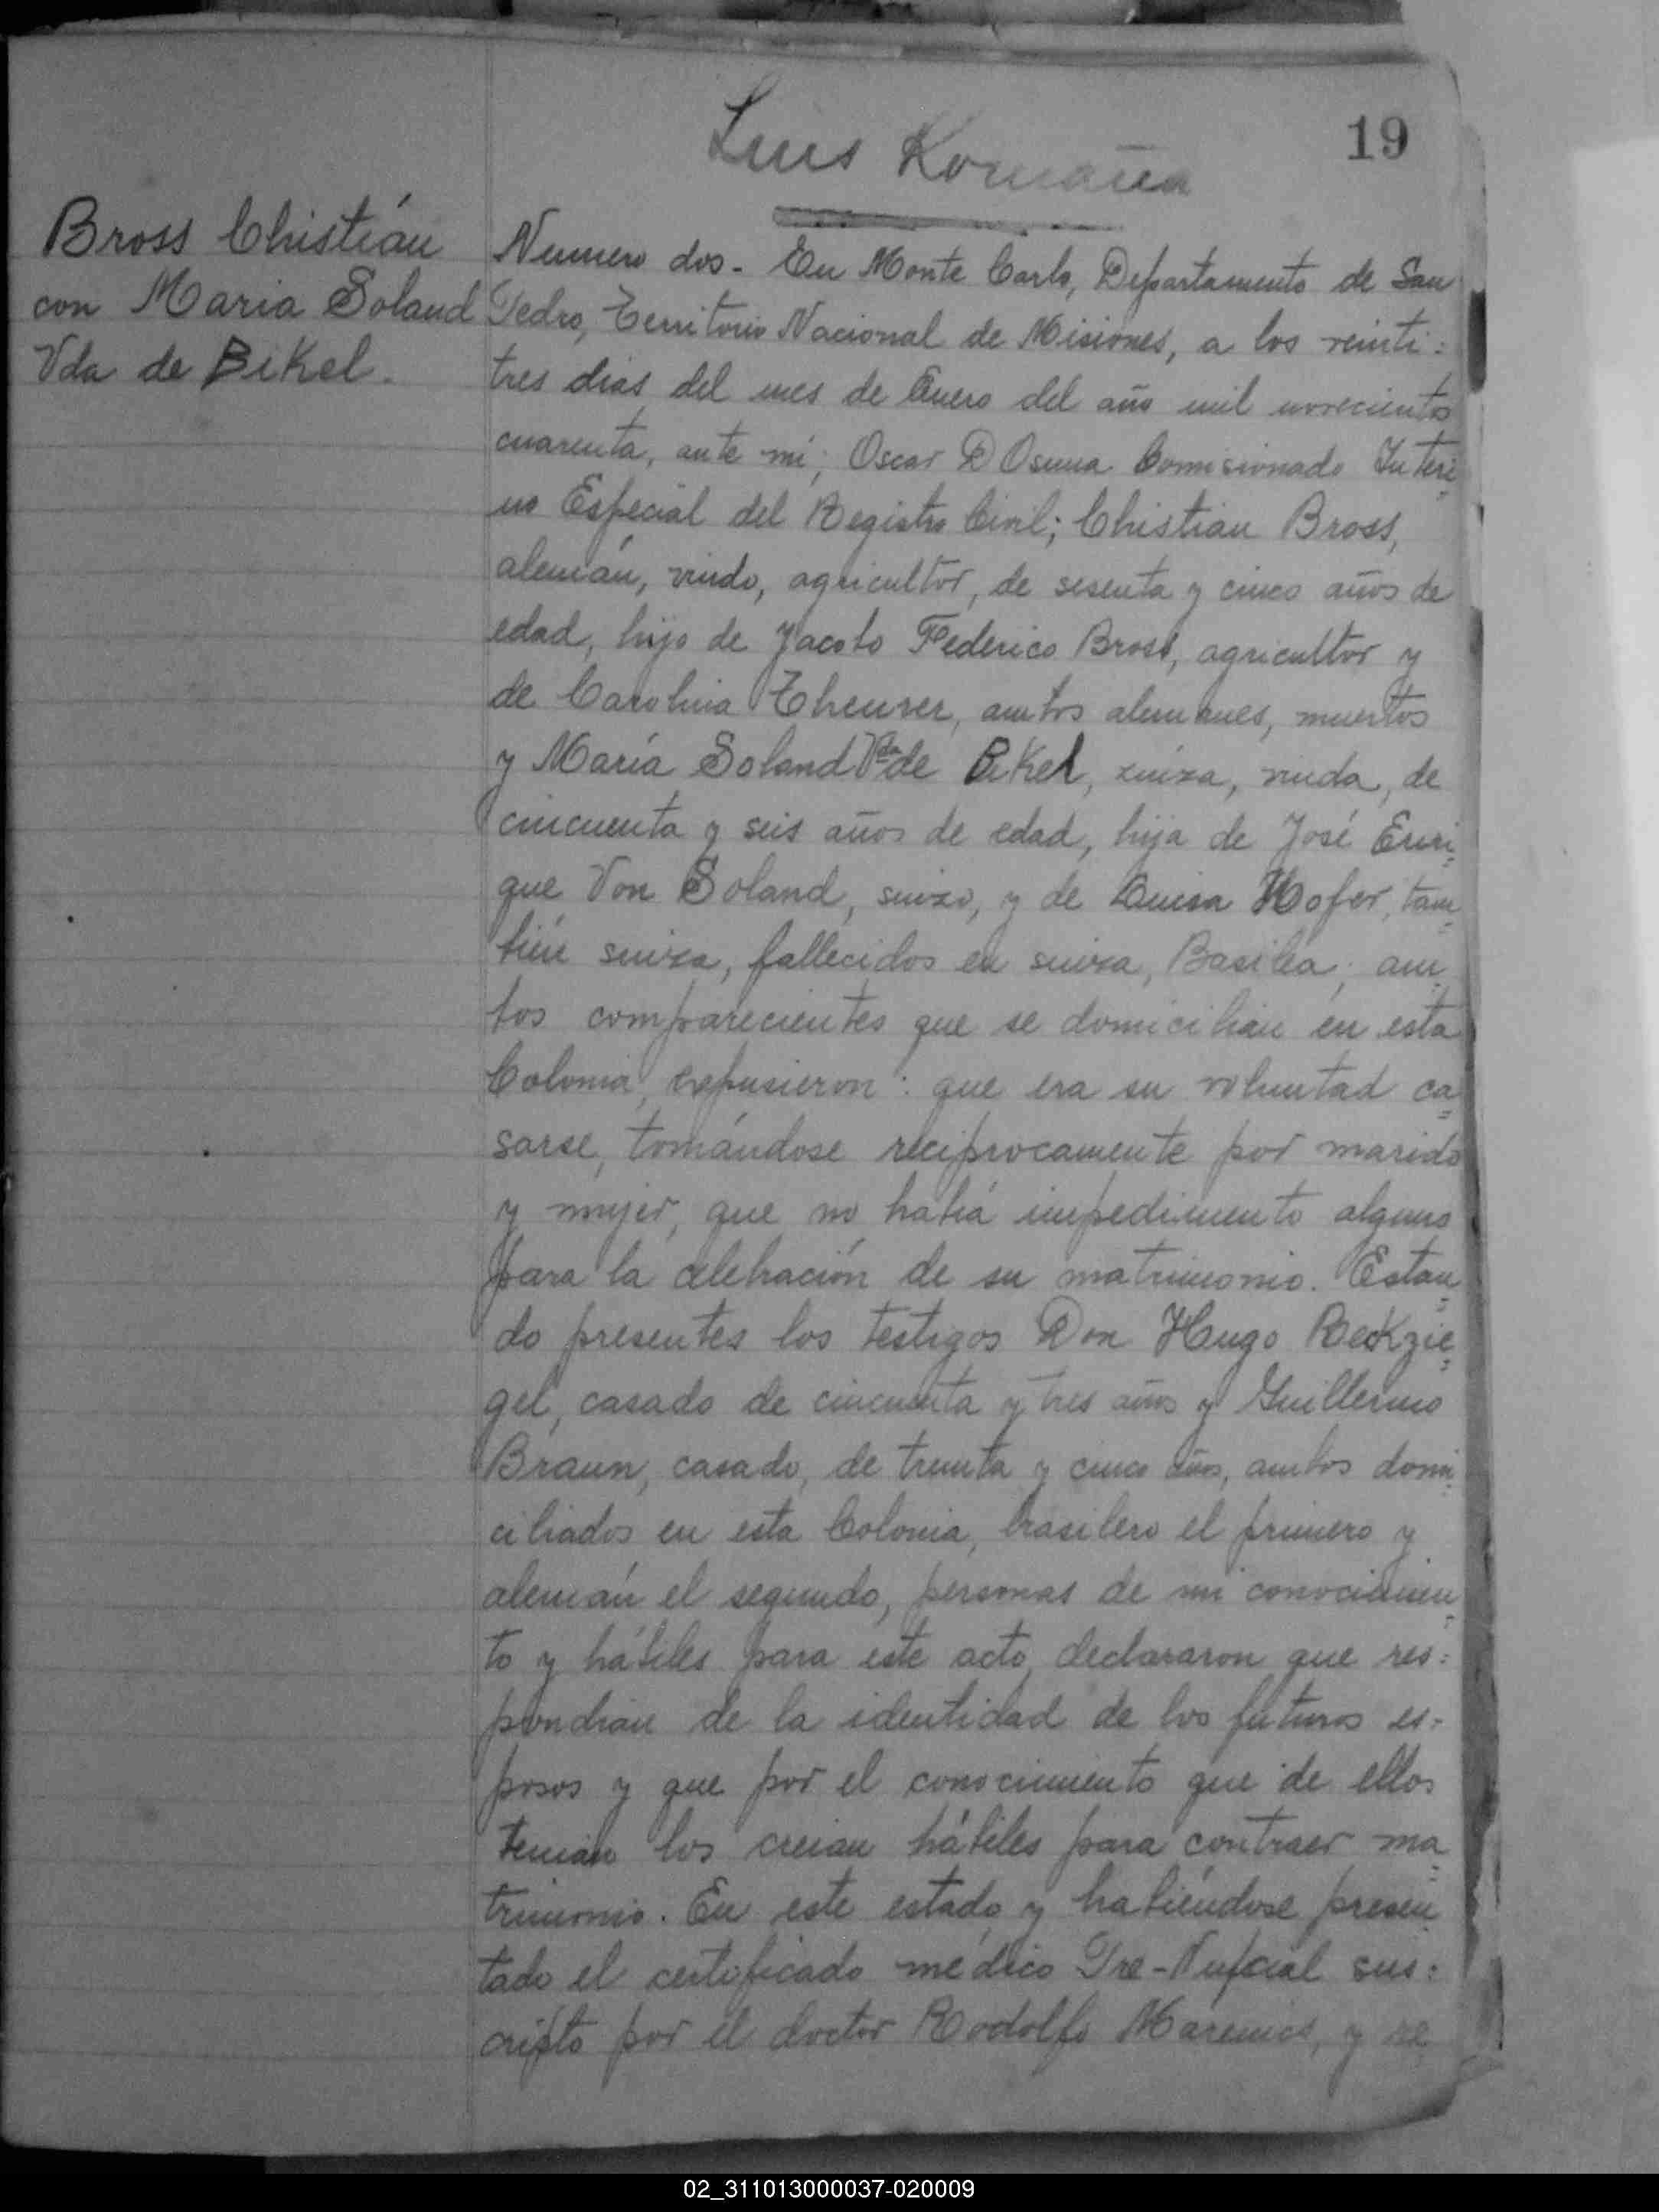 19
Luis
Bross Christián
con Maria Soland
Vda de Bikel.
Numero dos - En Monte Carlo, Departamento de San
Pedro, Territorio Nacional de Misiones, a los veinti=
tres dias del mes de Enero del año mil novecientos
cuarenta, ante mí; Oscar D Osuna Comisionado Interi=
no Especial del Registro Civil; Christian Bross,
alemán, viudo, agricultor, de sesenta y cinco años de
edad, hijo de Jacobo Federico Bross, agricultor y
de Carolina Theurer, ambos alemanes, muertos
y María Soland Vda de Bikel, suiza, viuda, de
cincuenta y seis años de edad, hija de José Enri=
que Von Soland, suizo, y de Luisa Hofer, tam=
bién suiza, fallecidos en suiza, Basilea; am=
bos comparecientes que se domicilian en esta
Colonia, expusieron: que era su voluntad ca=
sarse, tomándose reciprocamente por marido
y mujer, que no había impedimento alguno
para la celebración de su matrimonio. Estan=
do presentes los testigos Don Hugo Beckzie=
gel, casado de cincuenta y tres años y Guillermo
Braun, casado, de treinta y cinco años, ambos domi=
ciliados en esta Colonia, brasilero el primero y
alemán el segundo, personas de mi conocimien=
to y hábiles para este acto, declararon que res=
pondian de la identidad de los futuros es=
posos y que por el conocimiento que de ellos
tenian los creian hábiles para contraer ma=
trimonio. En este estado y habiéndose presen
tado el certificado médico Pre-Nupcial sus=
cripto por el doctor Rodolfo y re
02_311013000037-020009